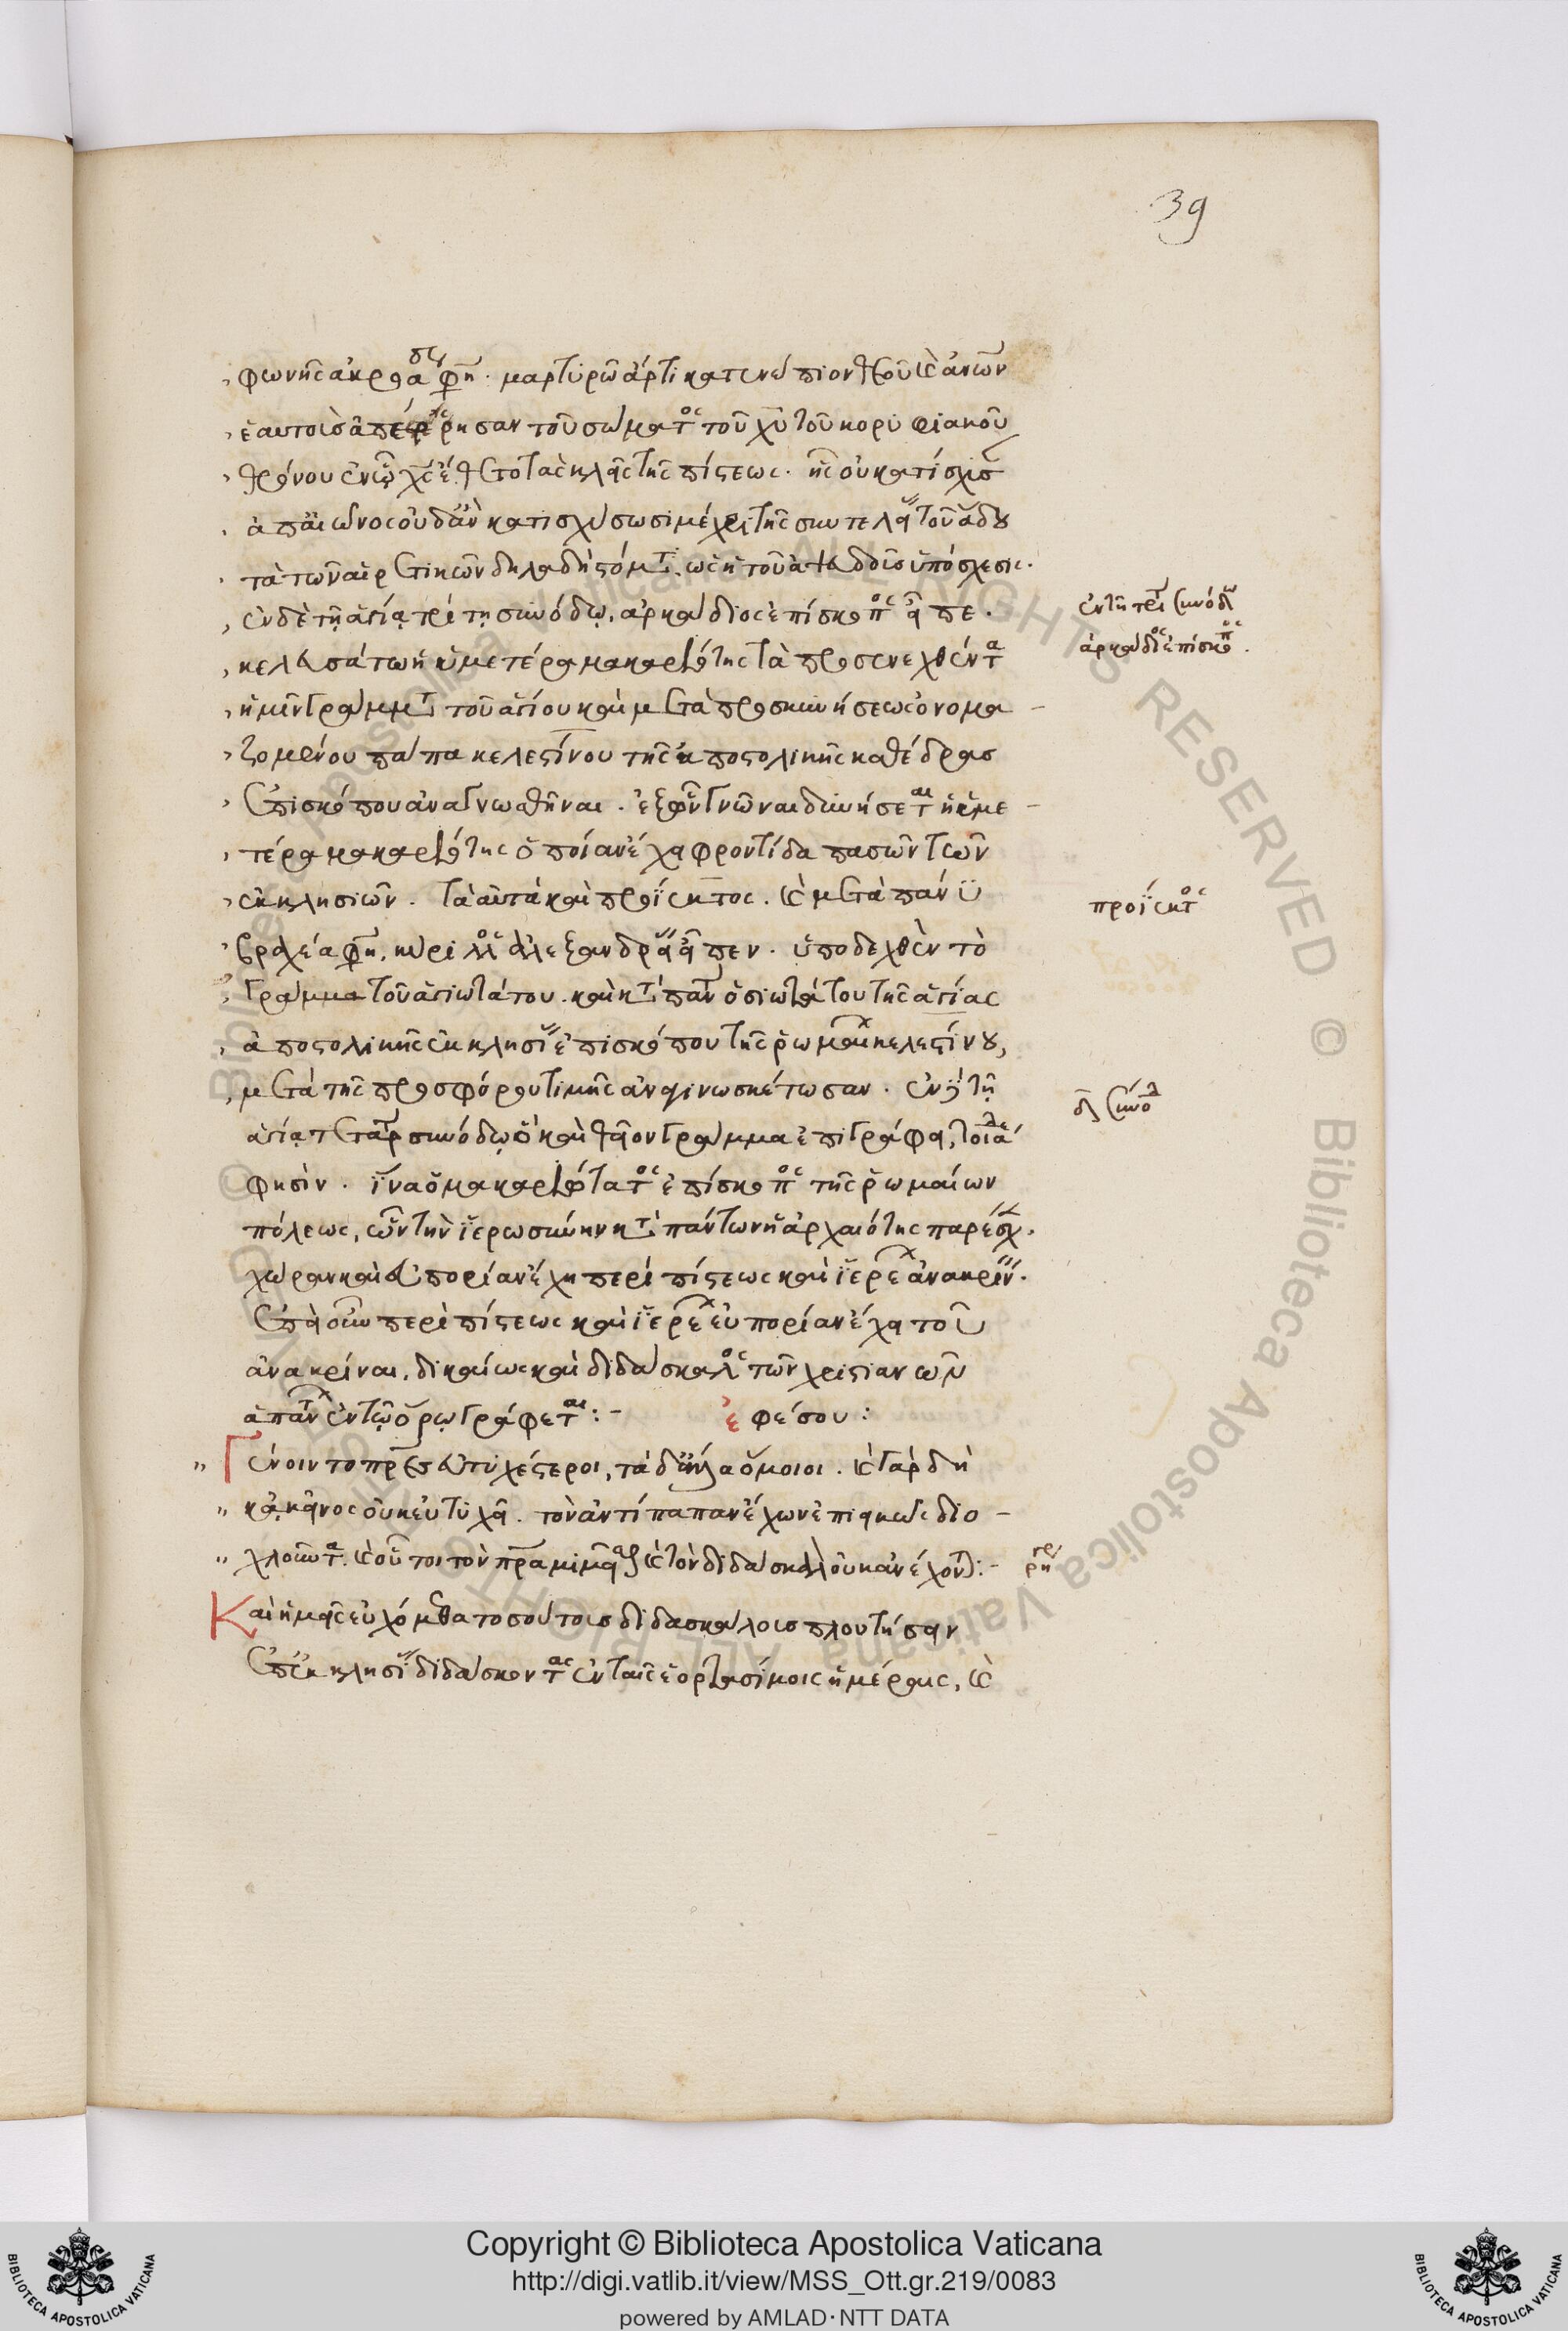 39
φωνῆς ἀκροα φη. μαρτυρῶ ἄρτι κατενώπιον θεοῦ καὶ ἀν̅ων
ἑαυτοὺς ρησαν τοῦ σώματος τοῦ χυ τοῦ κορυφιακοῦ
θρόνου ἐν ᾧ χς ἔθετο τὰς κλεῖς τῆς πίστεως. ἧς οὐ κατίσχυσ
ἀπ' αἰῶνος οὐδ' ἂν κατισχύσωσι μέχρι τῆς συντελείας τοῦ ἅδου
τὰ τῶν αἱρετικῶν δηλαδὴ στόματα. ὡς ἡ τοῦ ἀψευδοῦς ὑπόσχεσις.
ἐν δὲ τῇ ἁγίᾳ τρίτῃ συνόδῳ. ἀρκάδιος ἐπίσκοπος εἶπε.
κελευσάτω ἡ ὑμετέρα μακαριότης τὰ προσενεχθέντα
ἡμῖν γράμματα τοῦ ἁγίου καὶ μετὰ προσκυνήσεως ὀνομα-
ζομένου πάπα κελεστίνου τῆς ἀποστολικῆς καθέδρας
ἐπισκόπου ἀναγνωσθῆναι. ἐξ ὧν γνῶναι δυνήσεται ἡ ὑμε-
τέρα μακαριότης ὁποίαν ἔχει φροντίδα πασῶν τῶν
ἐκκλησιῶν. τὰ αὐτὰ καὶ προΐεκτος. καὶ μετὰ
βραχέα φη. κύριλλος ἀλεξανδρείας εἶπεν. ὑποδεχθὲν τὸ
γράμμα τοῦ ἁγιωτάτου. καὶ κατὰ πάντα ὁσιωτάτου τῆς ἁγίας
ἀποστολικῆς ἐκκλησίας ἐπισκόπου τῆς ῥωμαίων κελεστίνου,
μετὰ τῆς προσφόρου τιμῆς ἀναγινωσκέτωσαν. ἐν δὲ τῇ
ἁγίᾳ τετάρτῃ συνόδῳ ὃ καὶ θεῖον γράμμα ἐπιγράφει, τοιάδε
φησὶν. ἵνα ὁ μακαριότατος ἐπίσκοπος τῆς ῥωμαίων
πόλεως, ᾧτινι τὴν ἱερωσύνην κατὰ πάντων ἡ ἀρχαιότης παρέσχε.
χώραν καὶ εὐπορίαν ἔχῃ περὶ πίστεως καὶ ἱερέων ἀνακρίνειν.
ἐπεὶ οὖν περὶ πίστεως καὶ ἱερέων εὐπορίαν ἔχει τοῦ
ἀνακρίναι, δικαίως καὶ διδάσκαλος τῶν χριστιανῶν
ἁπάντων ἐν τῷ ὅρῳ γράφεται :- ἐφέσου :
Γένοιντο πρς εὐτυχέστεροι, τὰ δ' ἄλλα ὅμοιοι. καὶ γὰρ δὴ
κἀκεῖνος οὐκ εὐτυχεῖ. τὸν ἀντίπαπαν ἔχων ἐπιεικῶς διο-
χλοῦντα. καὶ οὗτοι τὸν πρα μιμεῖσθαι καὶ τὸν διδάσκαλον οὐκ ἀνέχονται :-
Καὶ ἡμᾶς εὐχόμεθα τοσούτοις διδασκάλοις πλουτήσειν
ἐπ' ἐκκλησίας διδάσκοντας ἐν ταῖς ἑορτασίμοις ἡμέραις, καὶ
ἐν τῇ τρίτῃ συνόδῳ
ἀρκάδιος ἐπίσκοπος.
προΐεκτος
δ συνόδ
Copyright © Biblioteca Apostolica Vaticana
http://digi.vatlib.it/view/MSS_Ott.gr.219/0083
powered by AMLAD·NTT DATA
BIBLIOTECA APOSTOLICA VATICANA
BIBLIOTECA APOSTOLICA VATICANA
© Biblioteca Apostolica Vaticana ALL RIGHTS RESERVED